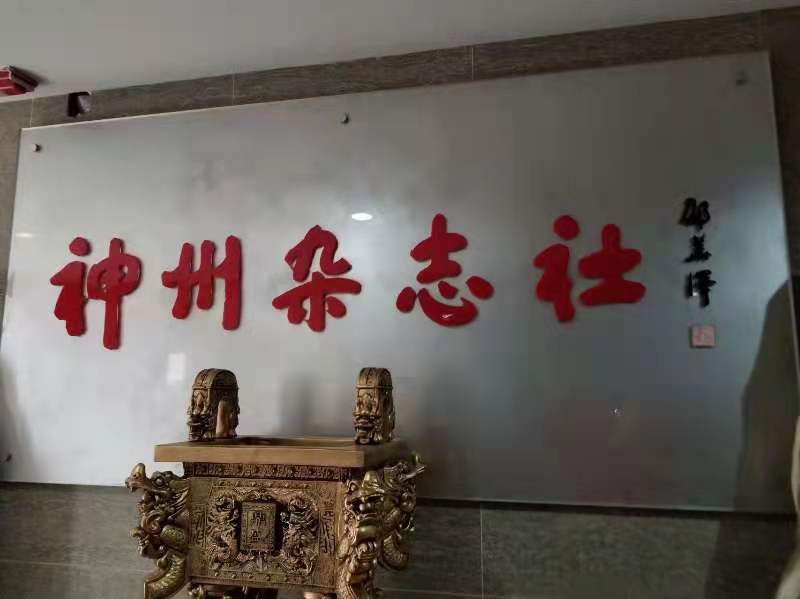 神州杂志社
邵华泽